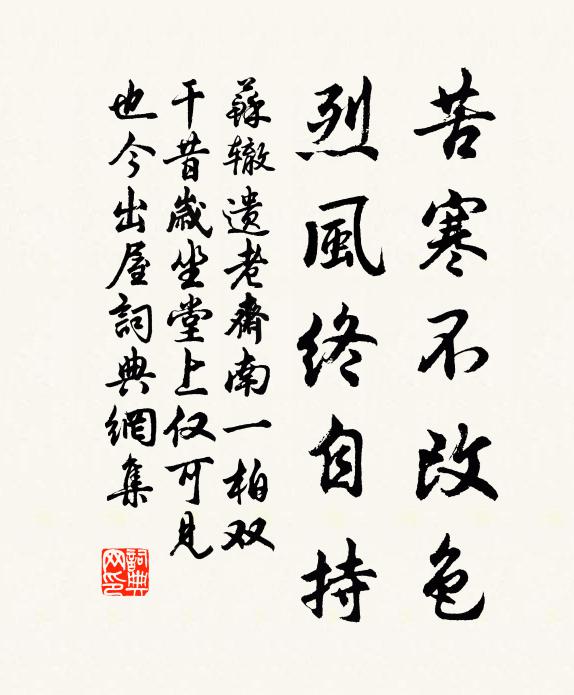 苦寒不改色
烈風终自持
蘇辙遗老齋南一柏双
干昔歲坐堂上仅可見
也今出屋詞典網集
詞典网印